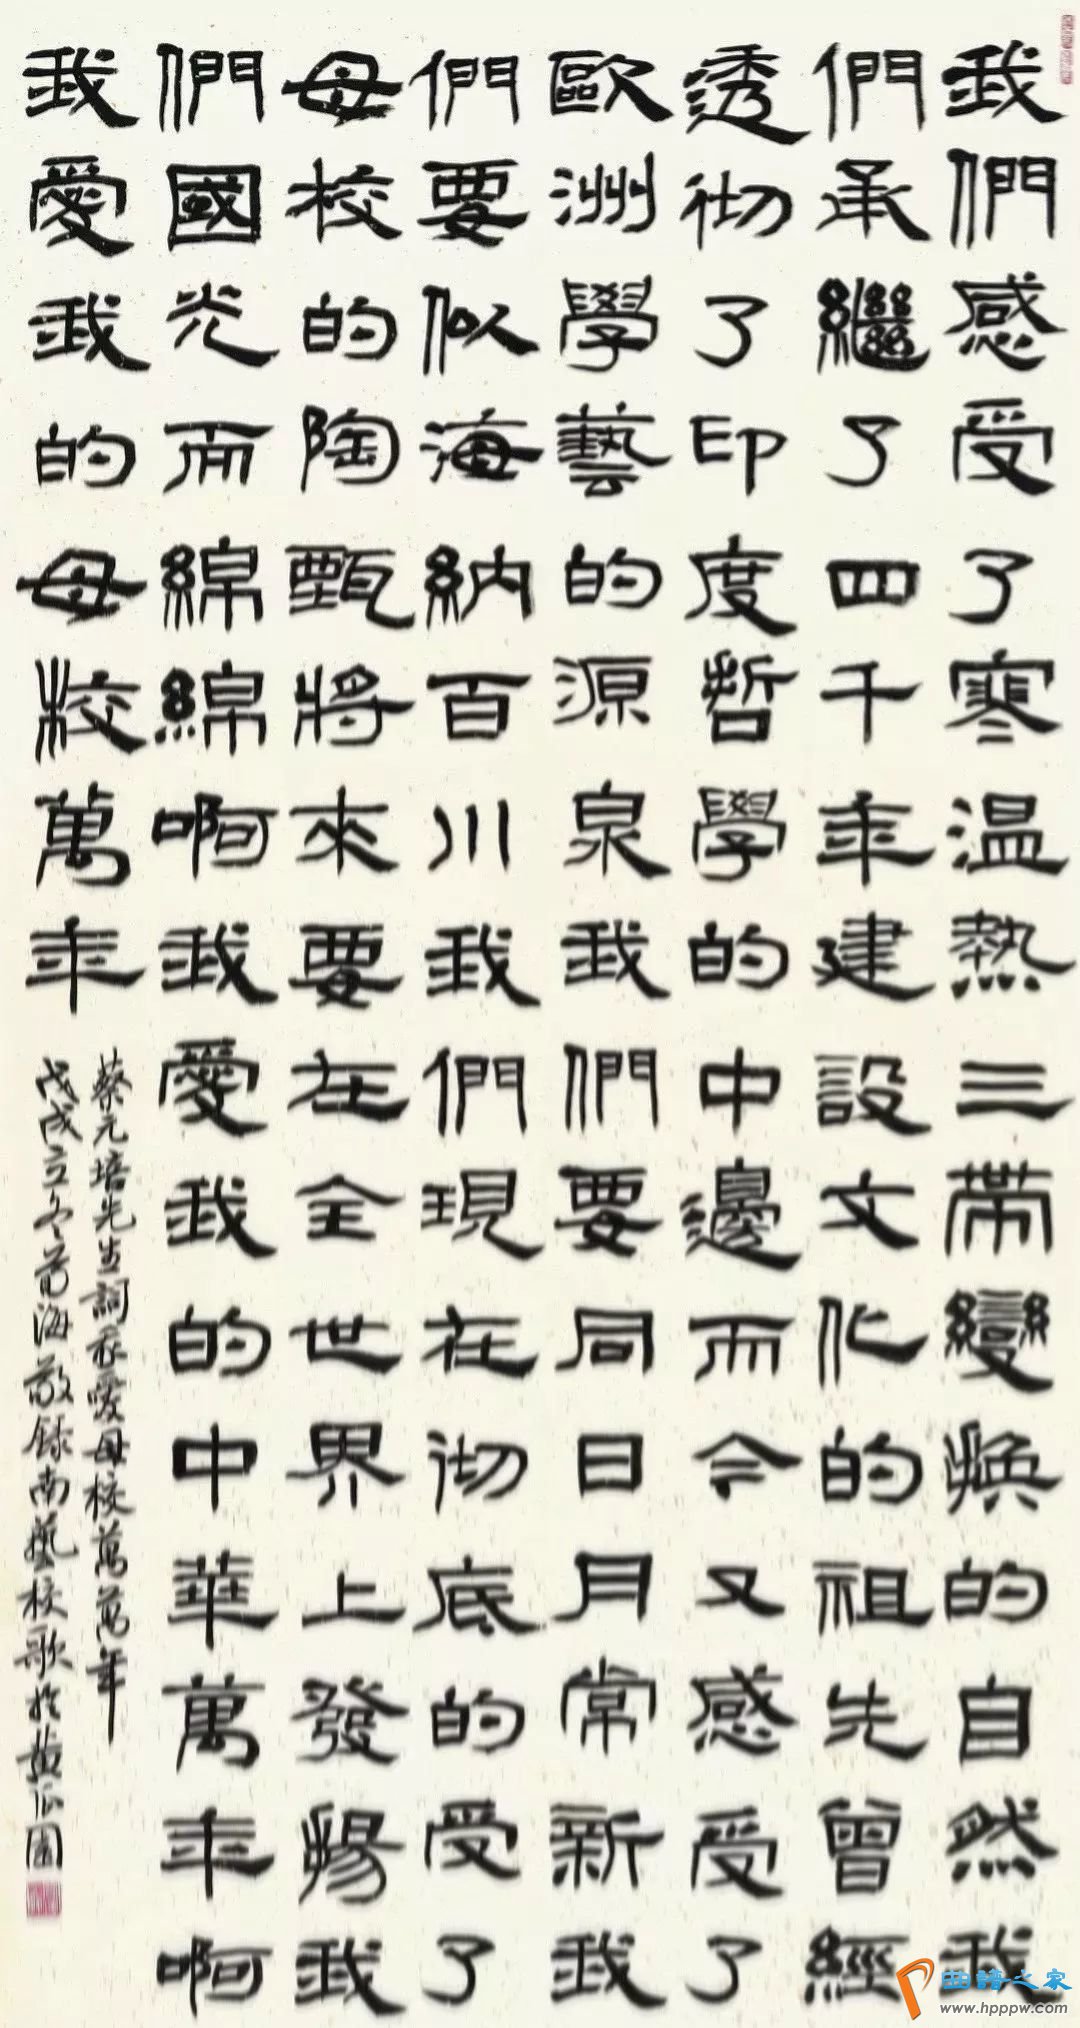 我們感受了寒温熱三帶變換的自然我
們承繼了四千年建設文化的祖先曾經
透彻了印度哲學的中邊而今又感受了
歐洲學藝的源泉我們要同日月常新我
們要似海納百川我們現在彻底的受了
母校的陶甄將來要在全世界上發揚我
們國光而綿綿啊我愛我的中華萬年啊
我愛我的母校萬年
蔡元培先生詞我愛母校萬萬年
戊戌立冬海敬錄南藝校歌於黄瓜園
曲譜之家
www.hpppw.com